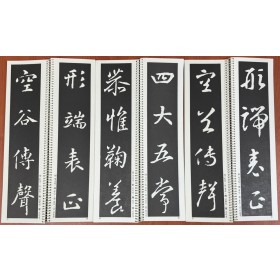 形端表正
空谷傳聲
四大五常
恭惟鞠養
形端表正
空谷傳聲